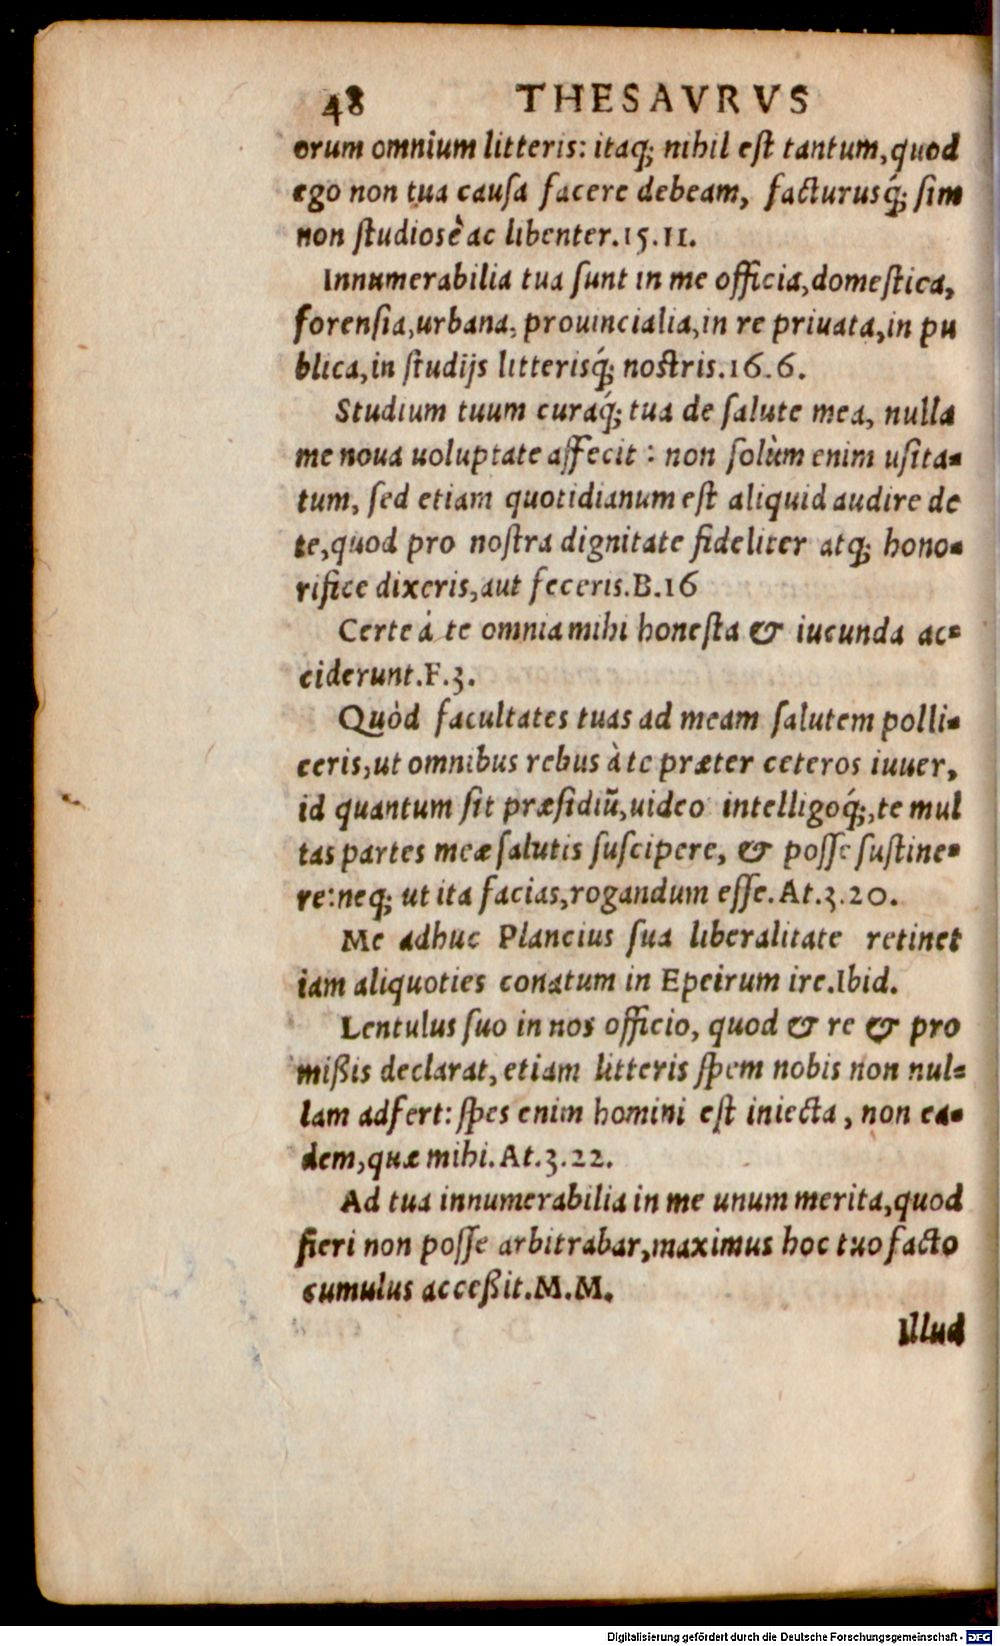 48 THESAVRVS
orum omnium litteris: itaq; nihil est tantum, quod
ego non tua causa facere debeam, facturusq́; sim
non studiosè ac libenter.15.11.
Innumerabilia tua sunt in me officia, domestica,
forensia, urbana, prouincialia, in re priuata, in pu
blica, in studijs litterisq́; nostris.16.6.
Studium tuum curaq́; tua de salute mea, nulla
me noua uoluptate affecit: non solùm enim usita-
tum, sed etiam quotidianum est aliquid audire de
te, quod pro nostra dignitate fideliter atq; hono-
rifice dixeris, aut feceris.B.16
Certe à te omnia mihi honesta & iucunda ac-
ciderunt.F.3.
Quòd facultates tuas ad meam salutem polli-
ceris, ut omnibus rebus à te præter ceteros iuuer,
id quantum sit præsidiũ, uideo intelligoq́;, te mul
tas partes meæ salutis suscipere, & posse sustine-
re: neq; ut ita facias, rogandum esse. At.3.20.
Me adhuc Plancius sua liberalitate retinet
iam aliquoties conatum in Epeirum ire. Ibid.
Lentulus suo in nos officio, quod & re & pro
mißis declarat, etiam litteris spem nobis non nul-
lam adfert: spes enim homini est iniecta, non ea-
dem, quæ mihi. At.3.22.
Ad tua innumerabilia in me unum merita, quod
fieri non posse arbitrabar, maximus hoc tuo facto
cumulus acceßit.M.M.
Illud
Digitalisierung gefördert durch die Deutsche Forschungsgemeinschaft - DFG